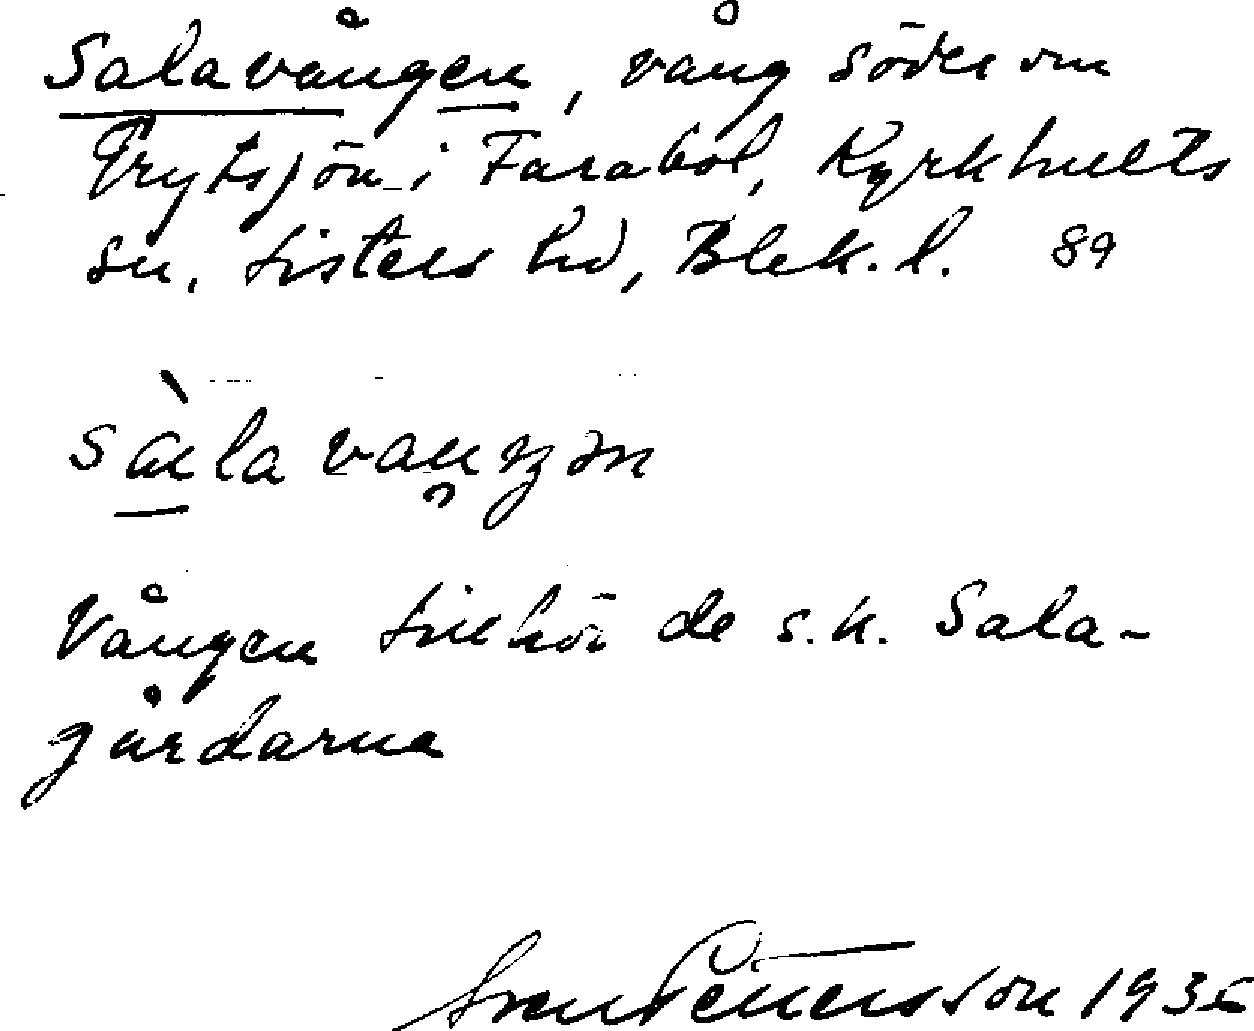 Salavången, vång söder om
Grytsjön i Farabol, Kyrkhults
sn, Listers hd, Blek. l. 89
sàla vaŋən
Vången tillhör de s.k. Sala-
gårdarna
Sven Pettersson 1935